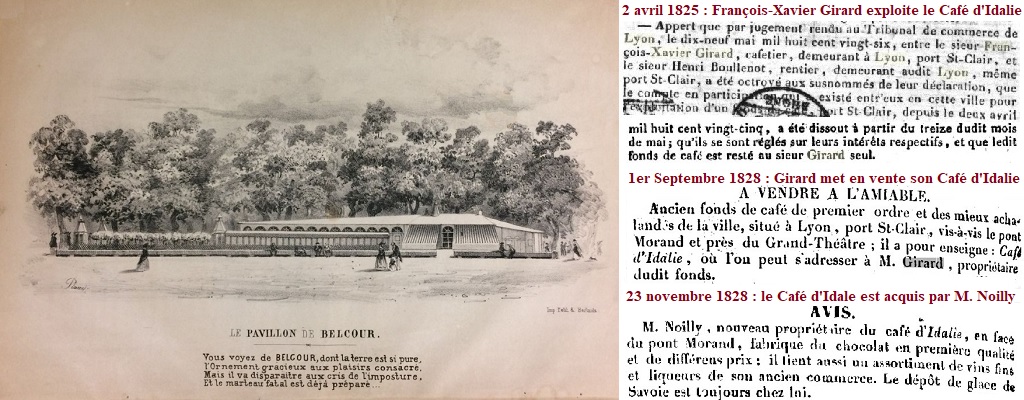 LE PAVILLON DE BELCOUR.
Vous voyez de BELCOUR, dont la terre est si pure,
l'Ornement gracieux aux plaisirs consacré.
Mais il va disparaître aux cris de l'imposture,
Et le marteau fatal est déjà préparé...
2 avril 1825 : François-Xavier Girard exploite le Café d'Idalie
— Appert que par jugement rendu au Tribunal de commerce de
Lyon, le dix-neuf mai mil huit cent vingt-six, entre le sieur Fran-
çois-Xavier Girard, cafetier, demeurant à Lyon, port St-Clair, et
le sieur Henri Boullenot, rentier, demeurant audit Lyon, même
port St-Clair, a été octroyé aux susnommés de leur déclaration, que
le compte en participation qui existé entr'eux en cette ville pour
l'exploitation d'un port St-Clair, depuis le deux avril
mil huit cent vingt-cinq, a été dissout à partir du treize dudit mois
de mai; qu'ils se sont réglés sur leurs intérêts respectifs, et que ledit
fonds de café est resté au sieur Girard seul.
1er Septembre 1828 : Girard met en vente son Café d'Idalie
A VENDRE A L'AMIABLE.
Ancien fonds de café de premier ordre et des mieux acha-
landés de la ville, situé à Lyon, port St-Clair, vis-à-vis le pont
Morand et près du Grand-Théâtre; il a pour enseigne : Café
d'Idalie, où l'on peut s'adresser à M. Girard, propriétaire
dudit fonds.
23 novembre 1828 : le Café d'Idale est acquis par M. Noilly
AVIS.
M. Noilly, nouveau propriétaire du café d'Idalie, en face
du pont Morand, fabrique du chocolat en première qualité
et de différens prix; il tient aussi un assortiment de vins fins
et liqueurs de son ancien commerce. Le dépôt de glace de
Savoie est toujours chez lui.